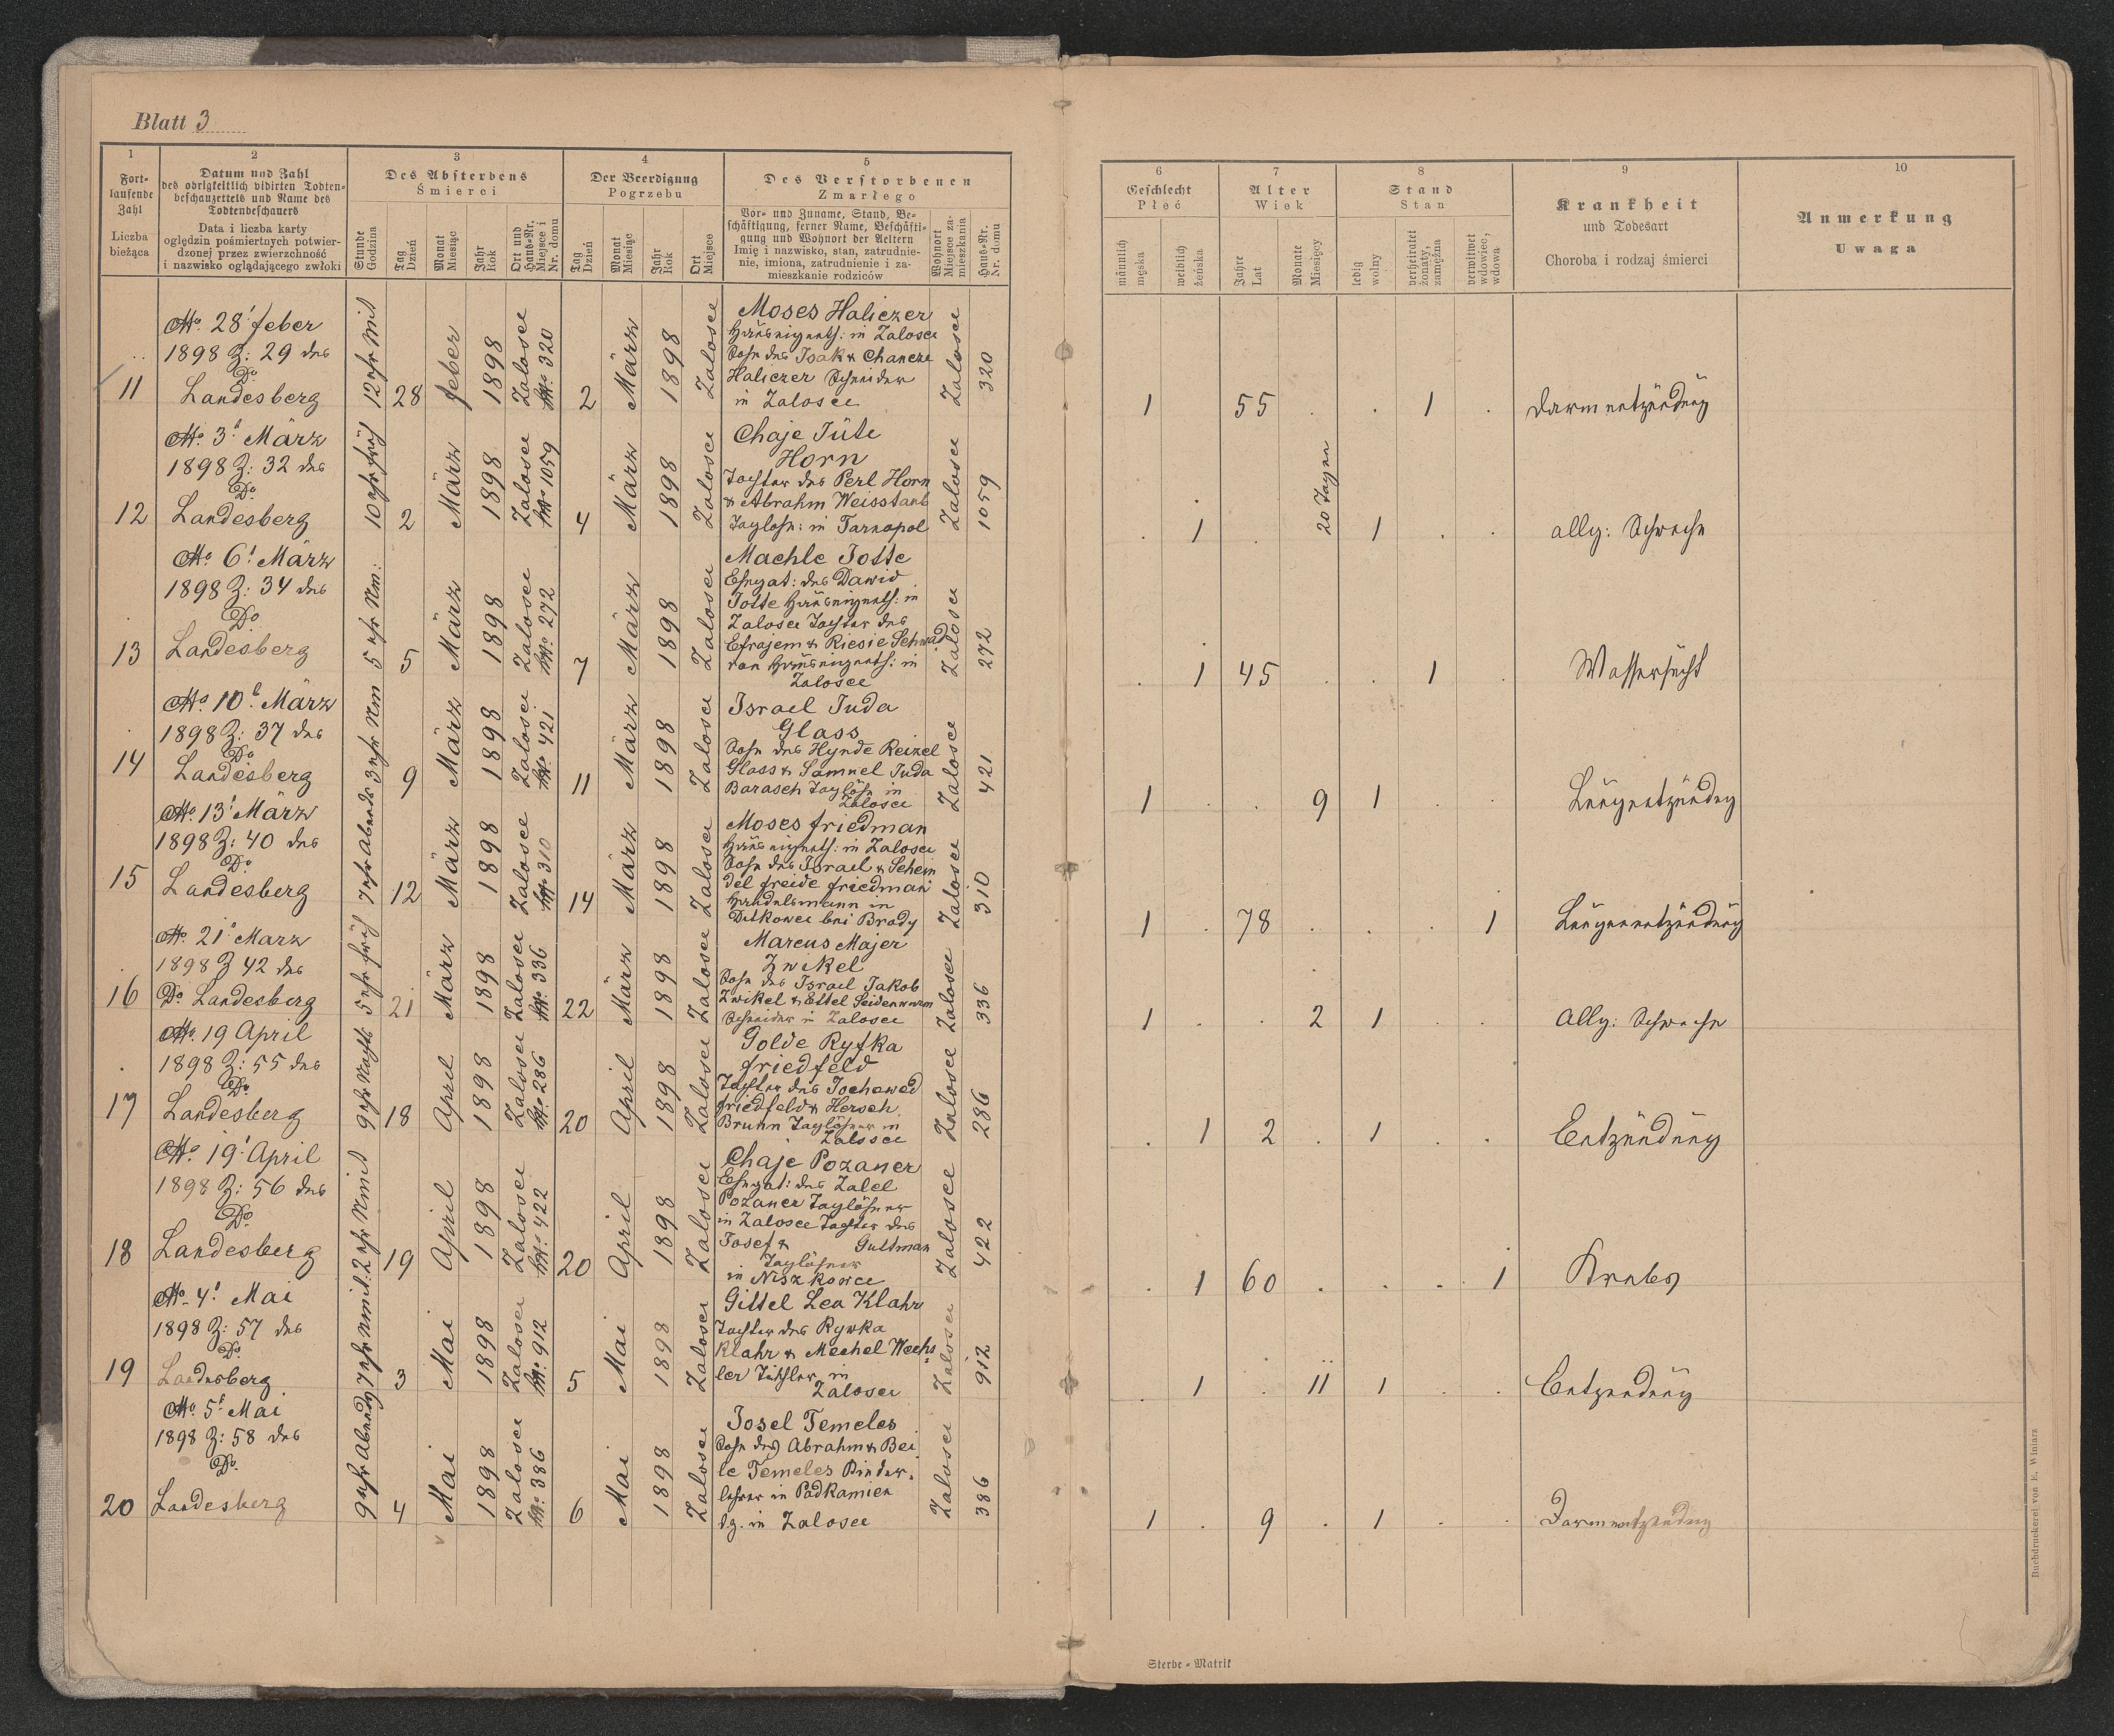 Blatt 3
1
Fort-
laufende
Zahl
Liczba
bieżąca
2
Datum und Zahl
des obrigkeitlich vidirten Todten-
beschauzettels und Name des
Todtenbeschauers
Data i liczba karty
oględzin pośmiertnych potwier-
dzonej przez zwierzchność
i nazwisko oglądającego zwłoki
3
Des Absterbens
Śmierci
Stunde
Godzina
Tag
Dzień
Monat
Miesiąc
Jahr
Rok
Ort und
Haus-Nr.
Miejsce i
Nr. domu
4
Der Beerdigung
Pogrzebu
Tag
Dzień
Monat
Miesiąc
Jahr
Rok
Ort
Miejsce
5
Des Verstorbenen
Zmarłego
Vor- und Zuname, Stand, Be-
schäftigung, ferner Name, Beschäfti-
gung und Wohnort der Aeltern
Imię i nazwisko, stan, zatrudnie-
nie, imiona, zatrudnienie i za-
mieszkanie rodziców
Wohnort
Miejsce za-
mieszkania
Haus-Nr.
Nr. domu
6
Geschlecht
Płeć
männlich
męska
weiblich
żeńska
7
Alter
Wiek
Jahre
Lat
Monate
Miesięcy
8
Stand
Stan
ledig
wolny
verheiratet
żonaty,
zamężna
verwitwet
wdowiec,
wdowa
9
Krankheit
und Todesart
Choroba i rodzaj śmierci
10
Anmerkung
Uwaga
11
28 feber
1898 Z: 29 des
Do
Landesberg
12 Uhr Mit
28
feber
1898
Zalosce
No 320
2
März
1898
Zalosce
Moses Haliczer
Hauseigenth: in Zalosce
Sohn des Isak & Chancze
Haliczer Schneider
in Zalosce
Zalosce
320
1 . 55 . . 1 .
Darmentzündung
12
3t März
1898 Z: 32 des
Do
Landesberg
10 Uhr früh
2
März
1898
Zalosce
No 1059
4
März
1898
Zalosce
Chaje Jüte
Horn
Tochter des Perl Horn
& Abrahm Weisstaub
Taglöhn: in Tarnopol
Zalosce
1059
. 1 . 20 Tagen 1 . .
allg: Schwäche
13
6t März
1898 Z: 34 des
Do
Landesberg
5 Uhr Nm:
5
März
1898
Zalosce
No 272
7
März
1898
Zalosce
Machle Totte
Ehegat: des Dawid
Totte Hauseigenth: in
Zalosce Tochter des
Efrojem & Riesie Schwad
ron Hauseigenth: in
Zalosce
Zalosce
272
. 1 45 . . 1 .
Wassersucht
14
10t März
1898 Z: 37 des
Do
Landesberg
3 Uhr Nm
9
März
1898
Zalosce
No 421
11
März
1898
Zalosce
Israel Juda
Glass
Sohn des Hynde Reizel
Glass & Samuel Juda
Barasch Taglöhn in
Zalosce
Zalosce
421
1 . . 9 1 . .
Lungentzündug
15
13t März
1898 Z: 40 des
Do
Landesberg
7 Uhr Abends
12
März
1898
Zalosce
No 310
14
März
1898
Zalosce
Moses friedman
Hauseigenth: in Zalosce
Sohn des Israel & Schein
del freide friedman
Handelsmann in
Ditkowce bei Brody
Zalosce
310
1 . 78 . . . 1
Lungenentzündung
16
21t Marz
1898 Z 42 des
Do Landesberg
5 Uhr früh
21
März
1898
Zalosce
No 336
22
März
1898
Zalosce
Marcus Majer
Zwikel
Sohn des Israel Jakob
Zwikel & Ettel Seidenwurm
Schneider in Zalosce
Zalosce
336
1 . . 2 1 . .
Allg: Schwäche
17
19 April
1898 Z: 55 des
Do
Landesberg
9 Uhr Nachts
18
April
1898
Zalosce
No 286
20
April
1898
Zalosce
Golde Ryfka
friedfeld
Tochter des Jochewed
friedfeld & Hersch
Brunn Taglöhner in
Zalosce
Zalosce
286
. 1 2 . 1 . .
Entzündung
18
19t April
1898 Z: 56 des
Do
Landesberg
2 Uhr Nmit
19
April
1898
Zalosce
No 422
20
April
1898
Zalosce
Chaje Pozaner
Ehegat: des Zalel
Pozaner Taglöhner
in Zalosce Tochter des
Josef & Gultman
Taglöhner
in Niszkowce
Zalosce
422
. 1 60 . . . 1
Krebs
19
4t Mai
1898 Z: 57 des
Do
Landesberg
7 Uhr Nmit:
3
Mai
1898
Zalosce
No 912
5
Mai
1898
Zalosce
Gittel Lea Klahr
Tochter des Rywka
Klahr & Mechel Wechs
ler Tischler in
Zalosce
Zalosce
912
. 1 . 11 1 . .
Entzündung
20
5t Mai
1898 Z: 58 des
Do
Landesberg
9 Uhr Abends
4
Mai
1898
Zalosce
No 386
6
Mai
1898
Zalosce
Josel Temeles
Sohn des Abrahm & Bei
le Temeles Kinder-
lehrer in Padkamien
dz. in Zalosce
Zalosce
386
1 . 9 . 1 . .
Darmentzündung
Sterbe-Matrik
Buchdruckerei von E. Winiarz